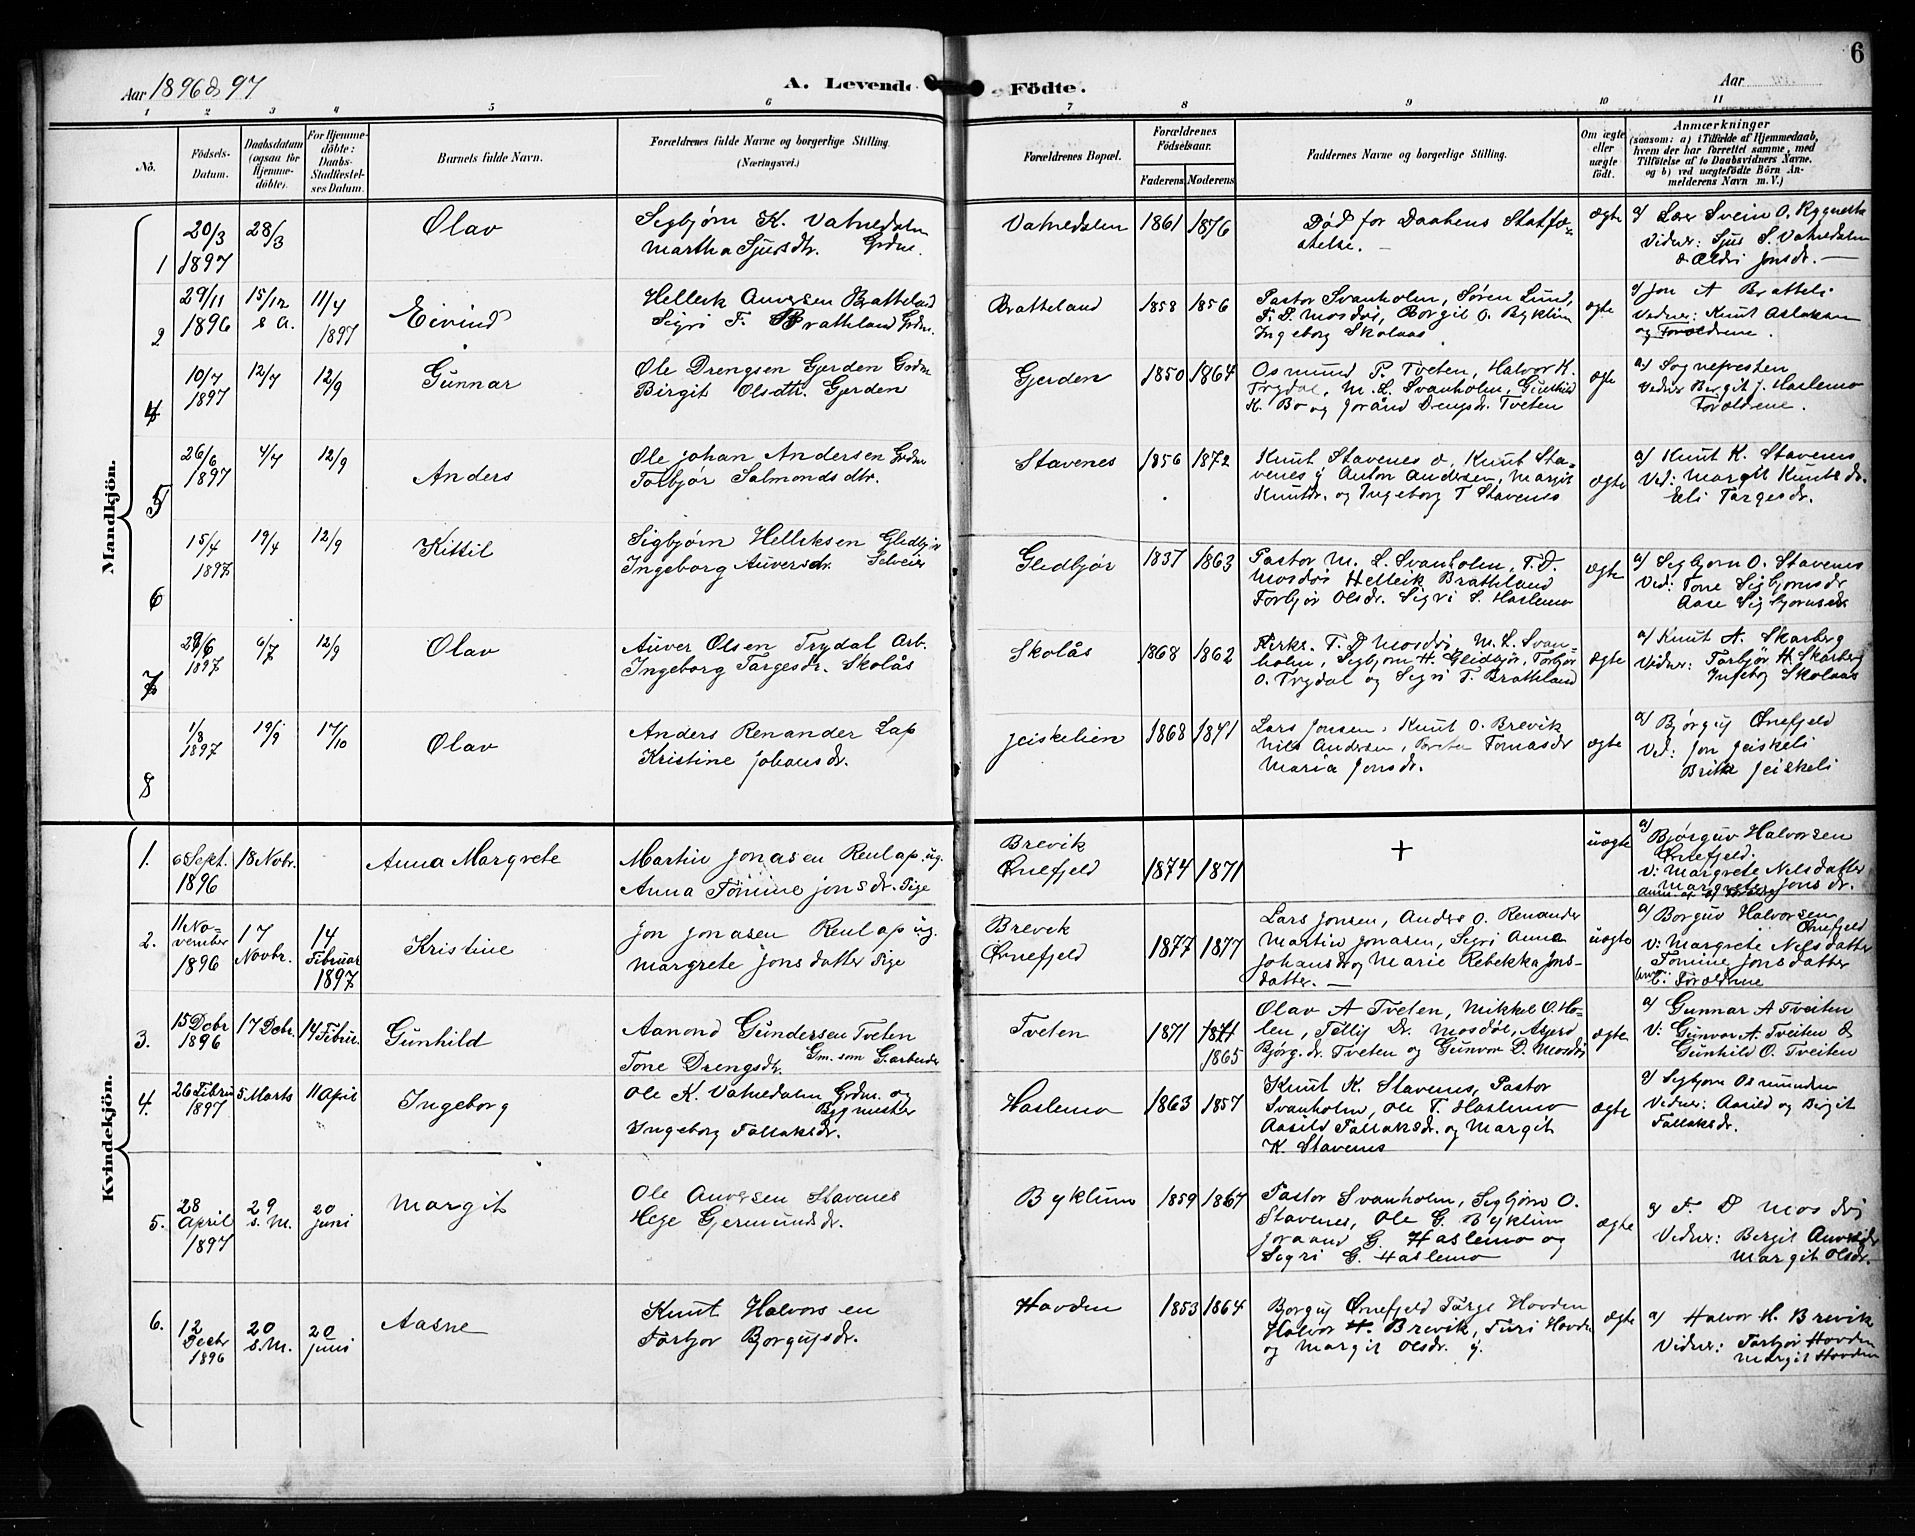 6
Aar 1896 & 97
A. Levende
Fødte.
Aar
1 2 3 4 5 6 7 8 9 10 11
No.
Födsels-
Datum.
Daabsdatum
(ogsaa for
Hjemme-
döbte).
For Hjemme-
döbte:
Daabs-
Stadfæstel-
ses Datum.
Barnets fulde Navn.
Forældrenes fulde Navne og borgerlige Stilling.
(Næringsvei.)
Forældrenes Bopæl.
Forældrenes
Födselsaar.
Faderens
Moderens
Faddernes Navne og borgerlige Stilling.
Om ægte
eller
uægte
födt.
Anmærkninger
(saasom: a) i Tilfælde af Hjemmedaab,
hvem der har forrettet samme, med
Tilföielse af to Daabsvidners Navne.
og b) ved uægtefödte Börn An-
melderens Navn m. V.)
Mandkjön.
1
20/3
1897
28/3
Olav
Sigbjørn K. Vatnedalen
Martha Sjursdtr. Grdm.
Vatnedalen
1861
1876
Død før Daabens Stadfæ-
stelse. -
ægte
a/ Lærer Svein O. Rygnestad
Vidner: Sjur S. Vatnedalen
& Aldri Jonsdr. -
2
29/11
1896
15/12
s. A.
11/4
1897
Eivind
Hellek Auversen Bratteland
Sigri T. Bratteland Grdm.
Bratteland
1858
1856
Pastor Svanholm, Søren Lund,
T. D. Mosdøl, Borgil O. Byklum
Ingeborg Skolaas
ægte
a/ Jon A Bratteli
Vidner: Knut Aslaksen
og Forældrene.
4
10/7
1897
12/7
12/9
Gunnar
Ole Drengsen Gjerden Grdm
Birgit Olsdtr. Gjerden
Gjerden
1850
1864
Osmund P. Tveten, Halvor K.
Trydal, M. L. Svanholm, Gunhild
K. Bo og Joránd Drengsdr. Tveten
ægte
a) Sognepresten
Vidner Bergit J. Haslemo
Forældrene.
5
26/6
1897
4/7
12/9
Anders
Ole Johan Andersen Grdm
Torbjør Salmondsdtr.
Stavenes
1856
1872
Knut Stavenes d, Knut Sta-
venes y Anton Andersen, Margit
Knutsdr. og Ingeborg T Stavenes
ægte
a) Knut K. Stavenes
Vid: Margit Knutsdr.
Eli Targesdr.
6
15/4
1897
19/4
12/9
Kittil
Sigbjørn Helleksen Glidbjør
Ingeborg Auversdr. Selveier
Glidbjør
1837
1863
Pastor M. L. Svanholm, T. D.
Mosdøl Helleik Bratteland
Torbjør Olsdr. Sigri S. Haslemo
ægte
a) Sigbjørn O. Stavenes
Vid: Tone Sigbjørnsdr
Aase Sigbjørnsdr
7
28/6
1897
6/7
12/9
Olav
Auver Olsen Trydal Arb.
Ingeborg Targesdr. Skolås
Skolås
1868
1862
Kirks. T. D Mosdøl, M. L. Svan-
holm, Sigbjørn H. Glidbjør, Torbjør
O. Trydal og Sigri T. Bratteland
ægte
a/ Knut A. Skarberg
Vidner: Torbjør H. Skarberg
Ingebog Skolaas
8
1/8
1897
19/9
17/10
Olav
Anders Renander Lap
Kristine Johansdr.
Jeiskelien
1868
1871
Lars Jonsen, Knut O. Brevik
Nils Andersen, Torsten Tomasdr
Maria Jonsdr.
ægte
a/ Bjørguf Ørnefjeld
Vid: Jon Jeiskeli
Brita Jeiskeli
Kvindekjön.
1.
6 Sept.
1896
18 Novbr.
Anna Margrete
Martin Jonasen Renlap ug.
Anna Tomine Jonsdr. Pige
Brevik
Ørnefjeld
1874
1871
+
uægte
a/ Bjørguv Halvorsen
Ørnefjeld.
V: Margrete Nilsdatter
Margrete Jonsdr.
2.
11 No-
vember
1896
17
Novbr.
14
Februar
1897
Kristine
Jon Jonasen Renlap ug.
Margrete Jonsdatter Pige
Brevik
Ørnefjeld
1877
1877
Lars Jonsen, Anders O. Renander
Martin Jonasen, Sigri Anna
Johansdr og Marie Rebekka Jons-
datter. -
uægte
a) Borguv Halvorsen
Ørnefjeld
V: Margrete Nilsdatter
Tomine Jonsdatter
Forældrene
3.
15 Debr
1896
17 Debr.
14 Februar.
Gunhild
Aanond Gundersen Tveten
Tone Drengsdr. Gm. som G.arbeider
Tveten
1871
1871
1865
Olav A Tveten, Mikkel O. Ho-
len, Tellif Dr. Mosdøl, Asjerd
Bjørg.dr. Tveten og Gunvor D. Mosdøl
ægte
a) Gunnar A Tveiten
V: Gunvor A. Tveiten &
Gunhild O. Tveiten
4.
26 Febru
1897
5 Marts
11 April
Ingeborg
Ole K. Vatnedalen Grdm. og
Bygmester
Ingeborg Tallaksdr.
Haslemo
1863
1857
Knut K. Stavenes, Pastor
Svanholm, Ole T. Haslemo
Aasild Tallaksdr. og Margit
K. Stavenes
ægte
a/ Sigbjørn Osmundsen
Vidner: Aasild og Birgit
Tallaksdr.
5.
28
April
1897
29
s. M.
20
Juni
Margit
Ole Auversen Stavenes
Hege Gjermundsdr.
Byklum
1859
1867
Pastor Svanholm, Sigbjørn O.
Stavenes, Ole G. Byklum
Joraand G. Haslemo og
Sigri G. Haslemo
ægte
a/ T. D Mosdøl
Vidner: Bergit Auversdr
Margit Olsdr.
6.
12
Decbr
1896
20
s. M.
20
Juni
Aasne
Knut Halvorsen
Torbjør Borgufsdr.
Hovden
1853
1864
Borguf Ørnefjeld Targe Hovden
Halvor H. Brevik, Turi Hovden
og Margit Olsdr. y.
ægte
a) Halvor H. Brevik
Vidner: Torbjør Hovden
Margit Hovden